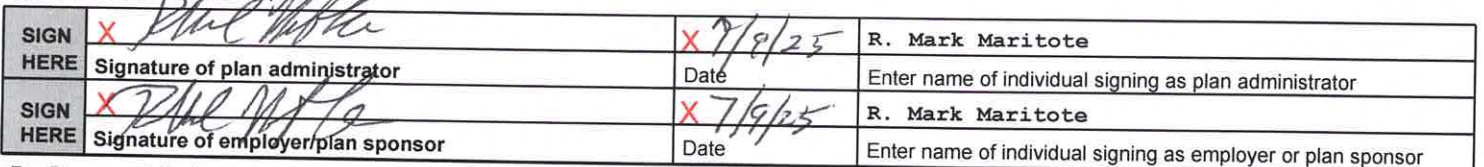 SIGN HERE X X 7/9/25 R. Mark Maritote
Signature of plan administrator Date Enter name of individual signing as plan administrator
SIGN HERE X X 7/9/25 R. Mark Maritote
Signature of employer/plan sponsor Date Enter name of individual signing as employer or plan sponsor